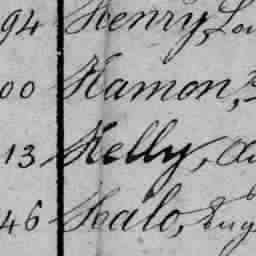 94 Henry, Lou
00 Hamon,
13 Kelly, Au
46 Halo, Eug